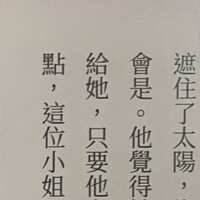 遮住了太陽，
會是。他覺得
給她，只要他
點，這位小姐